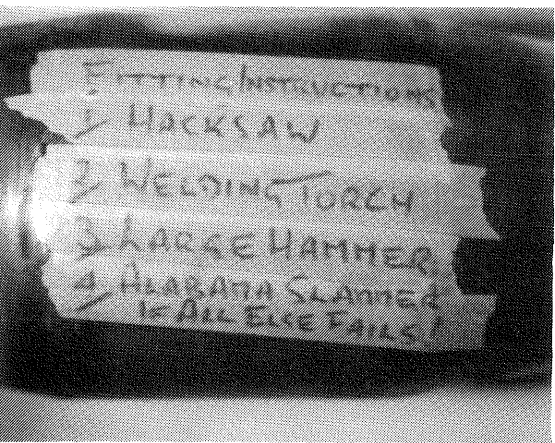 FITTING INSTRUCTIONS
1/ HACKSAW
2/ WELDING TORCH
3/ LARGE HAMMER
4/ ALABAMA SLAMMER
IF ALL ELSE FAILS!